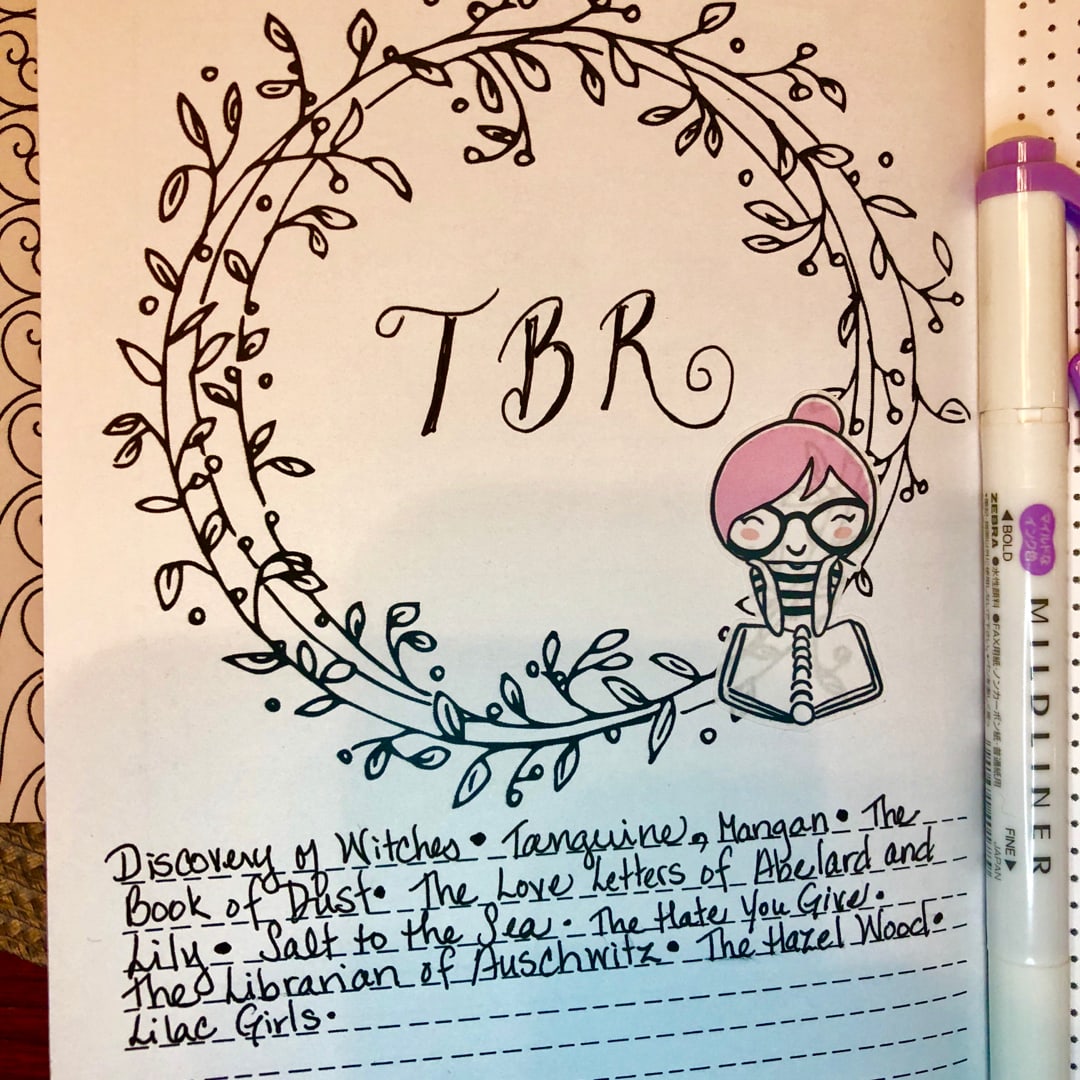 TBR
Discovery of Witches • Tanguine, Mangan • The
Book of Dust • The Love Letters of Abelard and
Lily • Salt to the Sea • The Hate You Give •
The Librarian of Auschwitz • The Hazel Wood •
Lilac Girls •
◀BOLD
マイルドな
インク色
ZEBRA
MILDLINER
FINE▶
JAPAN